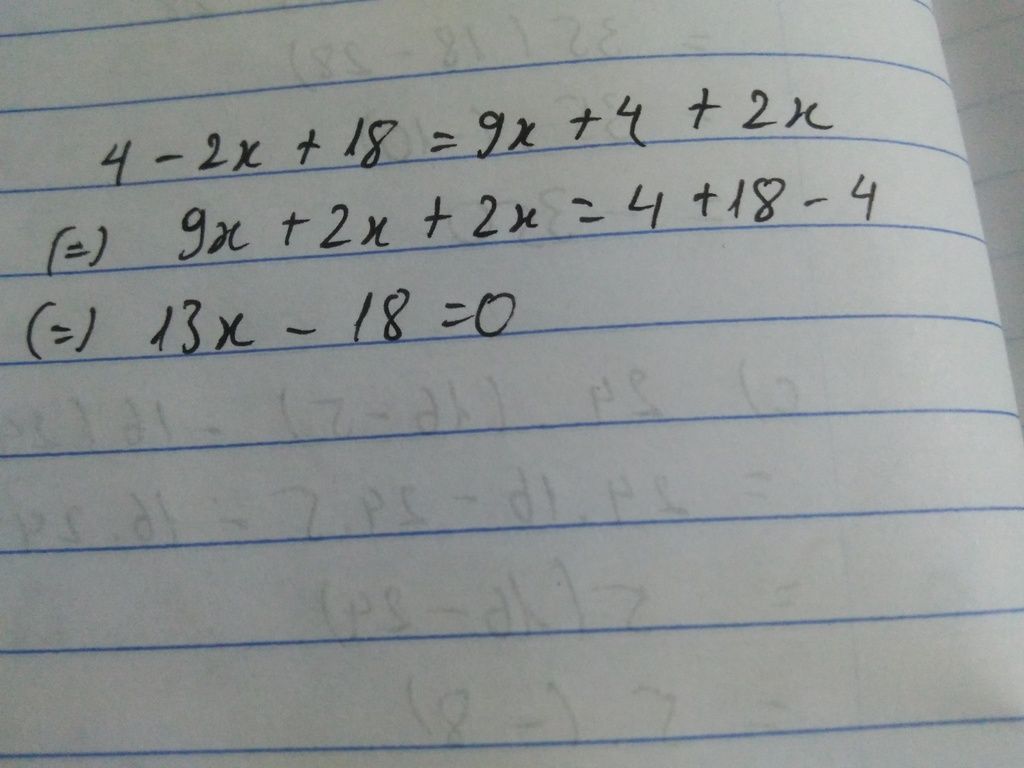 4 - 2x + 18 = 9x + 4 + 2x
(=) 9x + 2x + 2x = 4 + 18 - 4
(=) 13x - 18 = 0